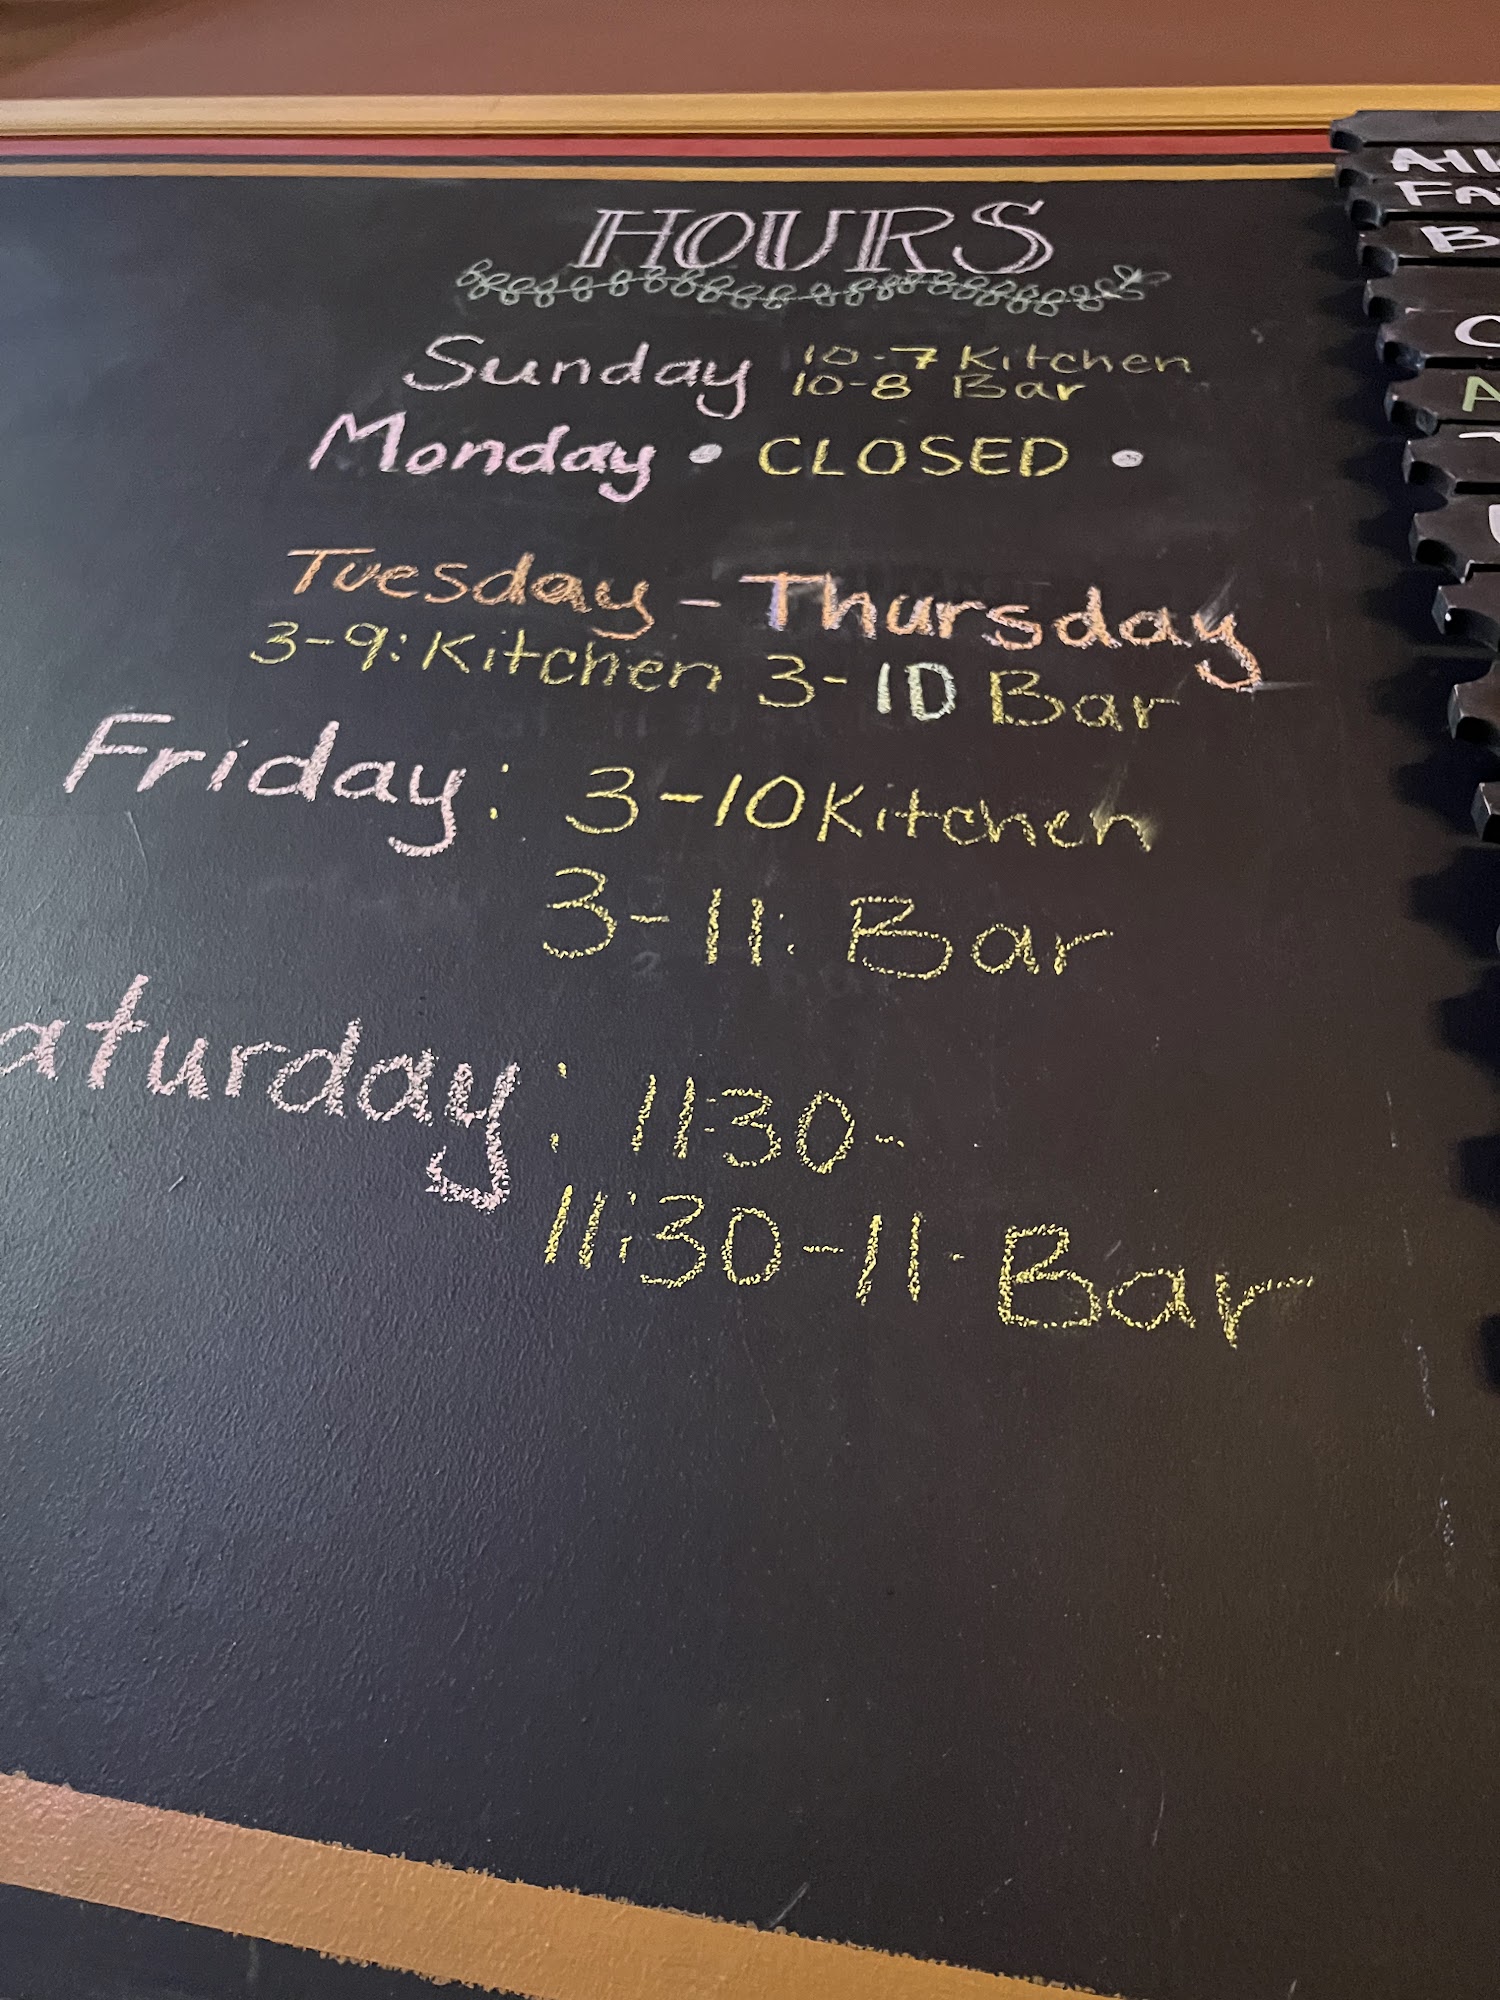 HOURS
Sunday 10-7 Kitchen
10-8 Bar
Monday • CLOSED •
Tuesday - Thursday
3-9: Kitchen 3-10 Bar
Friday: 3-10 Kitchen
3-11: Bar
aturday: 11:30-
11:30-11 Bar